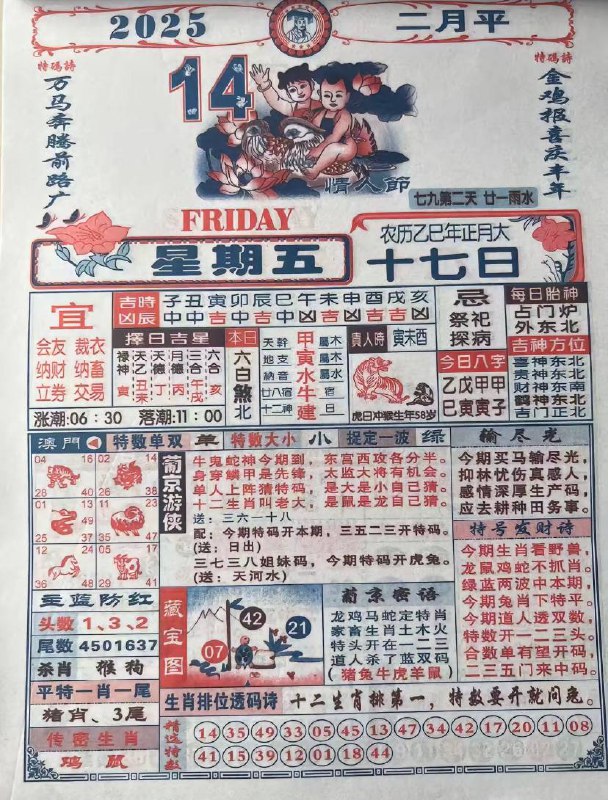 2025
二月平
特碼詩
万马奔腾前路广
14
特碼詩
金鸡报喜庆丰年
情人節
七九第二天 廿一雨水
FRIDAY
星期五
农历乙巳年正月大
十七日
宜
会友 裁衣
纳财 纳畜
立券 交易
涨潮:06:30 落潮:11:00
吉時 子丑寅卯辰巳午未申酉戌亥
凶辰 中中吉中吉中中吉吉吉吉中
擇日吉星
禄神 天乙 天德 月德 三合 六合
寅 丑未 丁 丙 午戌 亥
本日
六白煞北
天幹 甲 屬木
地支 寅 屬木
納音 水 屬水
廿八宿 牛 宿
十二神 建 日
貴人時 寅未酉
虎日冲猴生年58岁
忌
祭祀
探病
今日八字
乙戊甲甲
巳寅寅子
每日胎神
占门炉
外东北
吉神方位
喜神东北
贵神东北
财神东南
鹤神东北
吉门正北
澳門 特数单双 单 特数大小 小 捉定一波 绿
04 16
28 40
02 14
26 38
01 13
37 49
05 17
29 41
12 24
36 48
11 23
葡京游侠
牛鬼蛇神今期到，东宫西攻各分半。
身穿鳞甲是先锋，太监大将有机会。
单人上阵猜特码，是大是小自己猜。
十二生肖叫老大，是鼠是龙自己猜。
送：三六一十八
配：今期特码开本期，三五二三开特码。
(送：日出)
三七三八姐妹码，今期特码开虎兔。
(送：天河水)
输尽光
今期买马输尽光，
抑林忧伤真感人，
感情深厚生产码，
应去耕种田务事。
特号发财诗
今期生肖看野兽，
龙鼠鸡蛇不抓肖。
绿蓝两波中本期，
今期兔肖下特平。
今期道人透双数，
特数开一二三头。
合数单有望开码，
二三五门来中码。
主蓝防红
头数 1、3、2
尾数 4501637
杀肖 猴狗
平特一肖一尾
猪肖、3尾
传密生肖
鸡鼠
藏宝图
42
21
07
葡京密语
龙鸡马蛇定特肖
家畜生肖土木火
特头开在一二三
道人杀了蓝双码
(猪兔牛虎羊鼠)
生肖排位透码诗 十二生肖排第一，特数要开就问兔。
精选特数
14 35 49 33 05 45 13 47 42 17 20 11 08
41 15 39 12 01 18 44